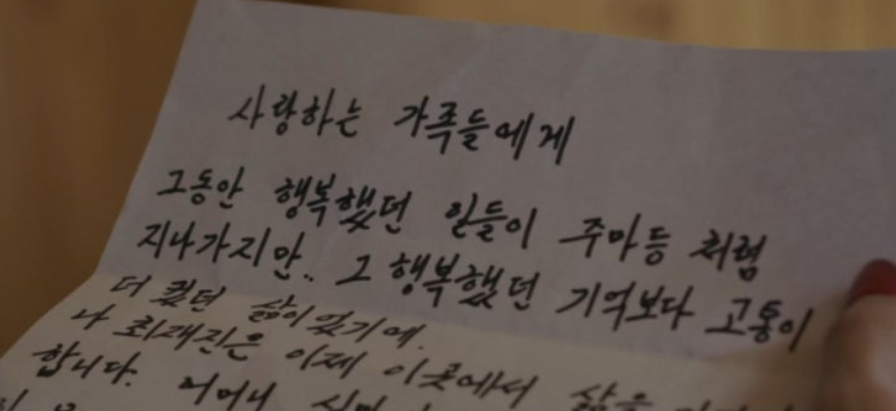 사랑하는 가족들에게
그동안 행복했던 일들이 주마등 처럼
지나가지만.. 그 행복했던 기억보다 고통이
더 컸던 삶이었기에.
나 최재진은 이제 이곳에서 삶을
합니다. 어머니